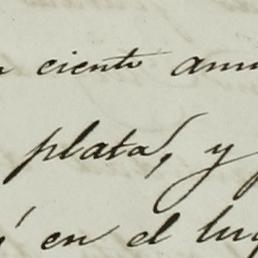 ciento
plata, y
en el